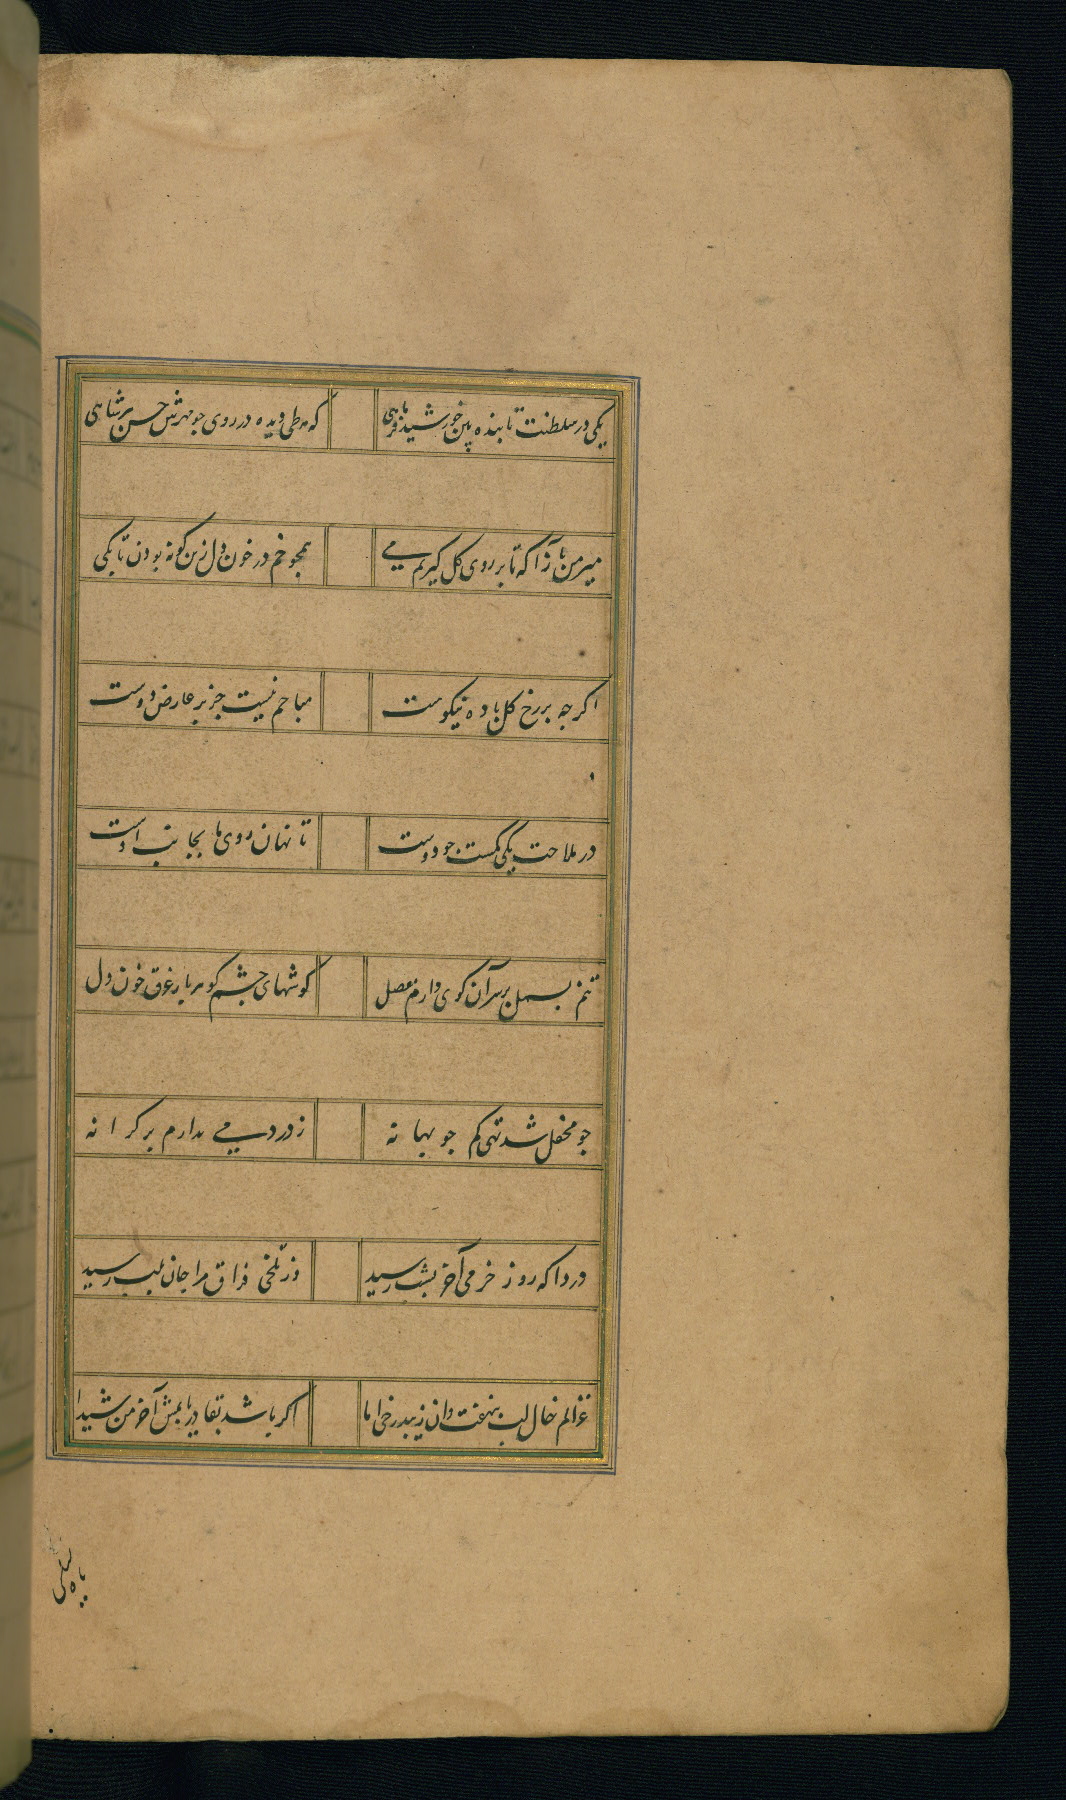 یکی در سلطنت تابنده بین خورشید فر ماهی که هر طی دیده در روی جو مهرش حسن بر شاهی
میر من بازآ که تا بر روی کل کیریم می همجو خم در خون دل زین کونه بودن تا بکی
اکر جه بر رخ کل باده نیکوست مباحم نیست جز بر عارض دوست
در ملاحت یکی کمست جو دوست تا نهان روی ما بجانب اوست
تنم بسمل بر سر آن کوی دارم متصل کوشهای جشم کوهر بار غرق خون دل
جو محفل شد تهی کم جو بهانه ز درد می مدارم بر کرانه
دردا که روز خرمی آخر بشب رسید وز تلخی فراق مرا جان بلب رسید
غزالم خال لب بنهفت وان زیبد رخی اما اکر باشد بقا دریابمش آخر من شیدا
پاه سلمی